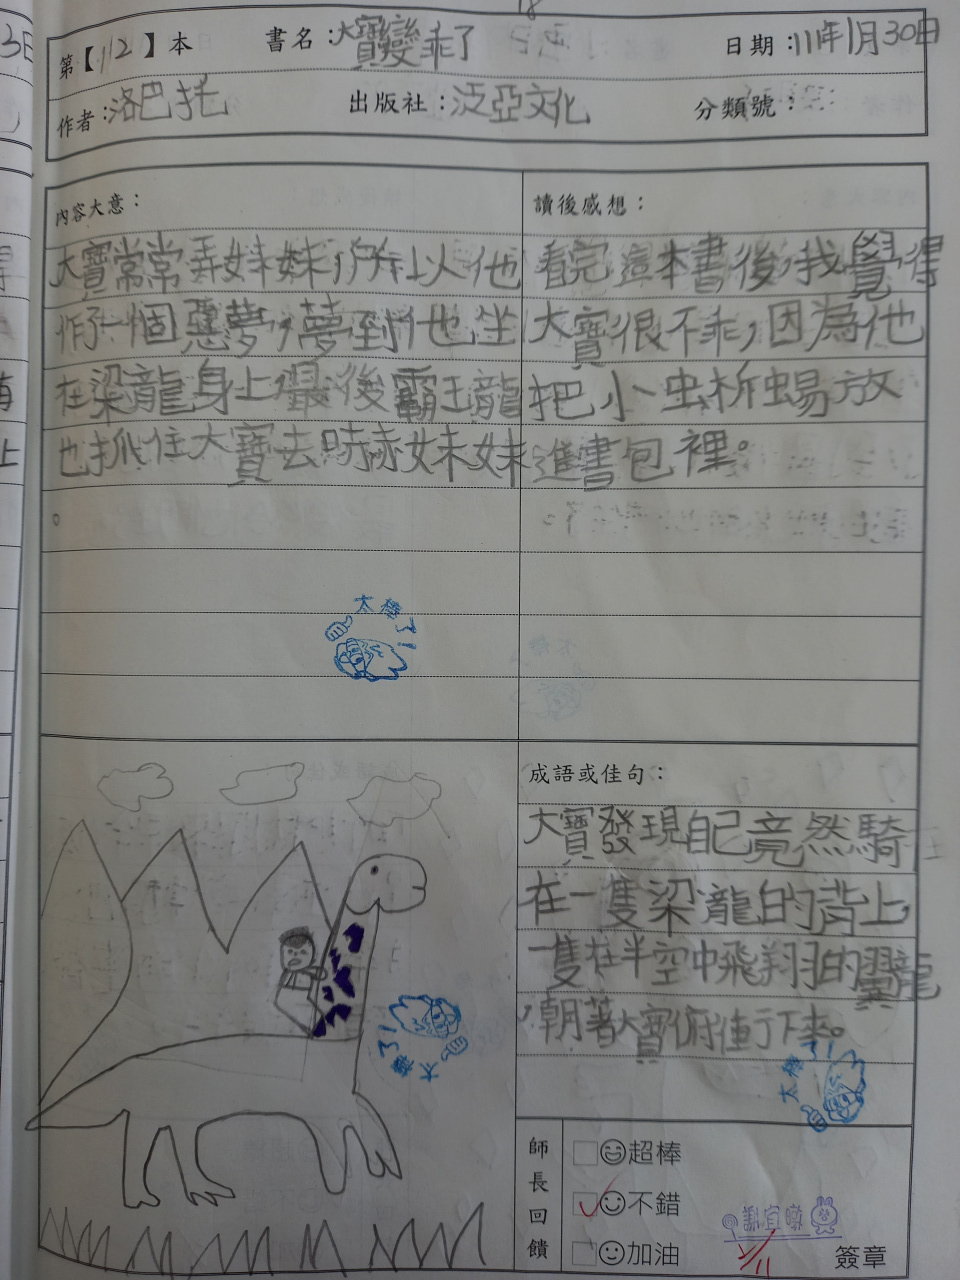 第【112】本 書名:大寶變乖了 日期:111年1月30日
作者:洛巴托 出版社:泛亞文化 分類號:
內容大意:
大寶常常弄妹妹,所以他
作了一個惡夢,夢到他坐
在梁龍身上,最後霸王龍
也抓住大寶去時赤妹妹
。
太棒了!
讀後感想:
看完這本書後,我覺得
大寶很不乖,因為他
把小虫析蜴放
進書包裡。
成語或佳句:
大寶發現自己竟然騎
在一隻梁龍的背上,
一隻在半空中飛翔的翼龍
,朝著大寶俯衝下來。
太棒了!
太棒了!
師長回饋
超棒
不錯
加油
簽章